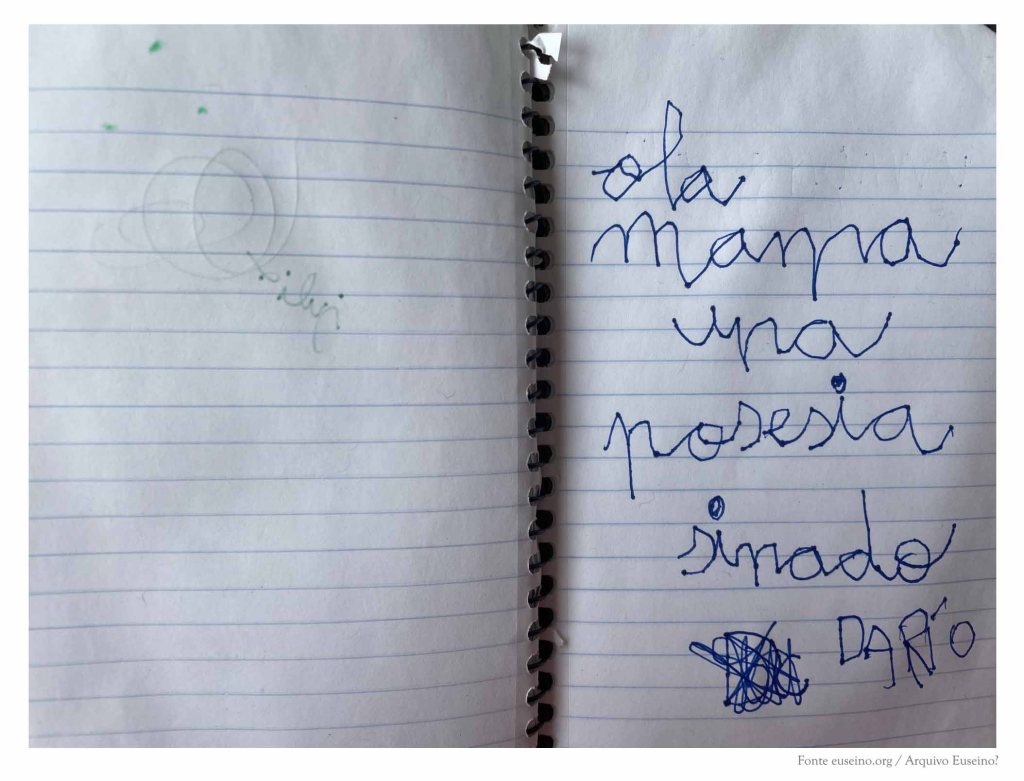 ola
mama
una
posesia
sinado
DARÍO
Fonte euseino.org / Arquivo Euseino?